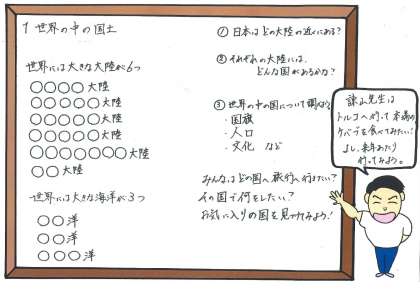 1 世界の中の国土
世界には大きな大陸が6つ
○○○○大陸
○○○○○大陸
○○○○○大陸
○○○○○大陸
○○○○○○○大陸
○○大陸
世界には大きな海洋が3つ
○○洋
○○洋
○○○洋
① 日本はどの大陸の近くにある?
② それぞれの大陸には、
どんな国があるかな?
③ 世界の中の国について調べよう
・国旗
・人口
・文化 など
みんなはどの国へ旅行へ行きたい?
その国で何をしたい?
お気に入りの国を見つけてみよう!
先生は
トルコへ行って本場の
ケバブを食べてみたい!
よし、来年あたり
行ってみよう。